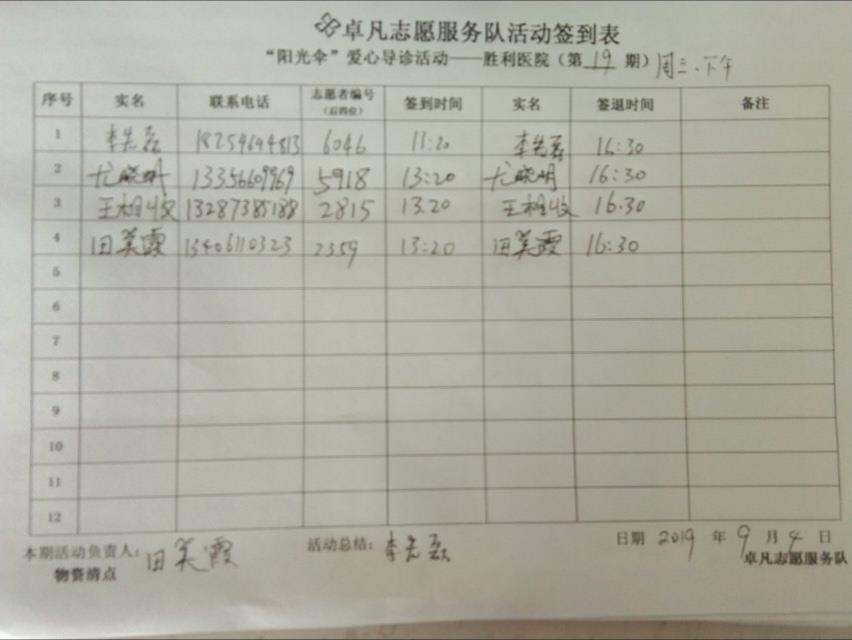 卓凡志愿服务队活动签到表
“阳光伞”爱心导诊活动——胜利医院（第 19 期）周三、下午
序号 实名 联系电话 志愿者编号（后四位） 签到时间 实名 签退时间 备注
1 李先磊 18254694813 6046 13:20 李先磊 16:30
2 尤晓明 13356609969 5918 13:20 尤晓明 16:30
3 王相收 13287385188 2815 13.20 王相收 16:30
4 田美霞 13406110323 2359 13:20 田美霞 16:30
5
6
7
8
9
10
11
12
本期活动负责人：田美霞 活动总结：李先磊 日期 2019 年 9 月 4 日
物资清点 卓凡志愿服务队